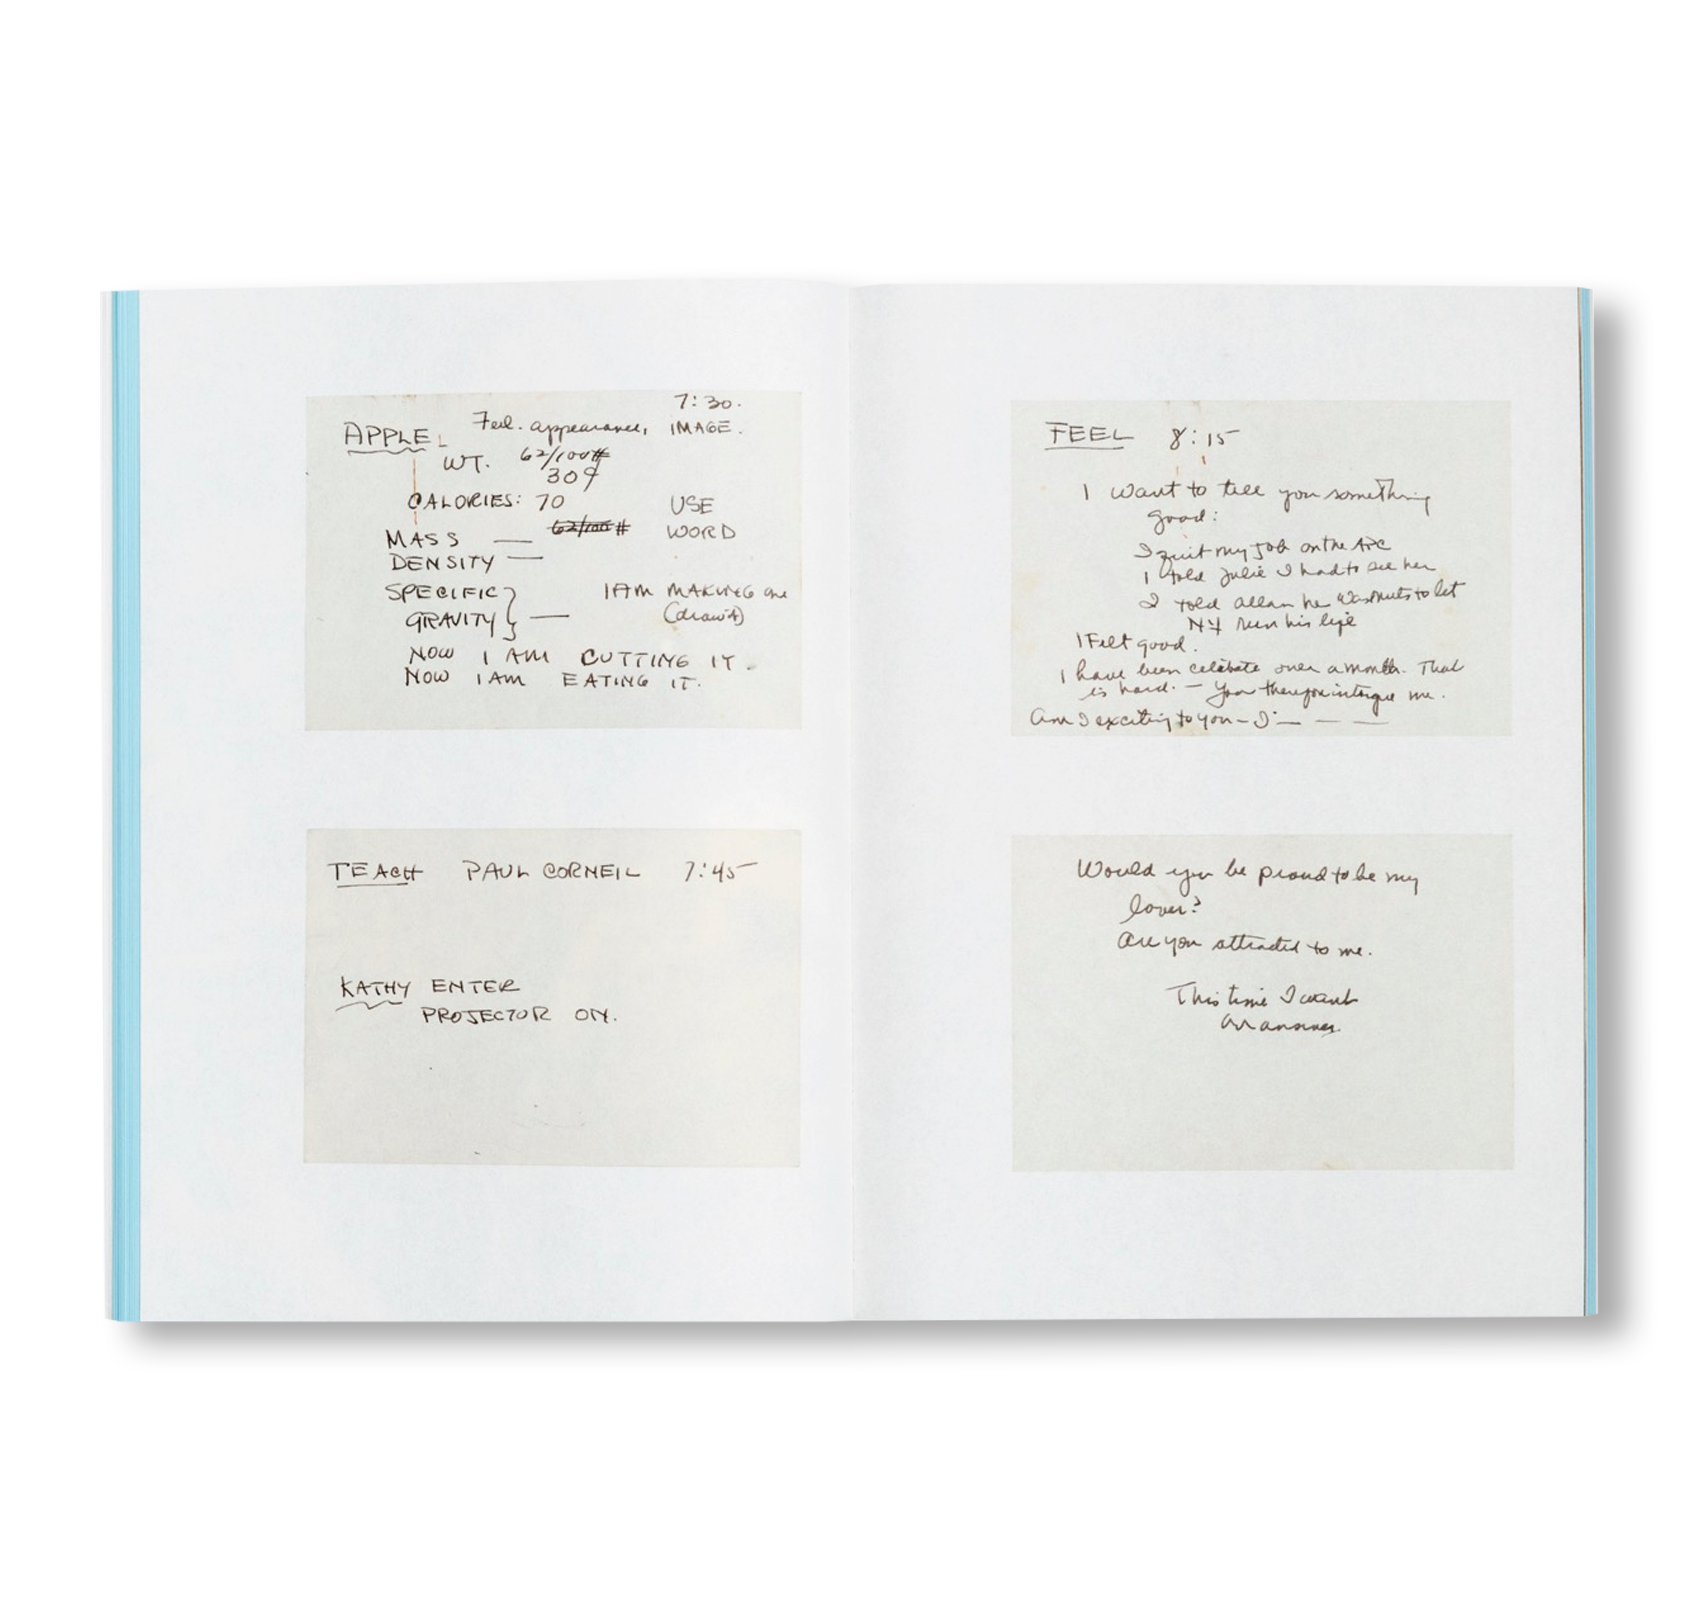 7:30.
APPLE Feel. appearance, IMAGE.
WT. 62/100#
30¢
CALORIES: 70 USE
62/100# WORD
MASS —
DENSITY —
SPECIFIC } I AM MAKING one
GRAVITY } — (draw it)
NOW I AM CUTTING IT.
NOW I AM EATING IT.
TEACH PAUL CORNEIL 7:45
KATHY ENTER
PROJECTOR ON.
FEEL 8:15
I want to tell you something
good:
I quit my Job on the APC
I told Julie I had to see her
I told Allan he was nuts to let
NY run his life
I Felt good.
I have been celebate over a month. That
is hard. — You therefore intrigue me.
Am I exciting to you – I — — —
Would you be proud to be my
lover?
Are you attracted to me.
This time I want
an answer.